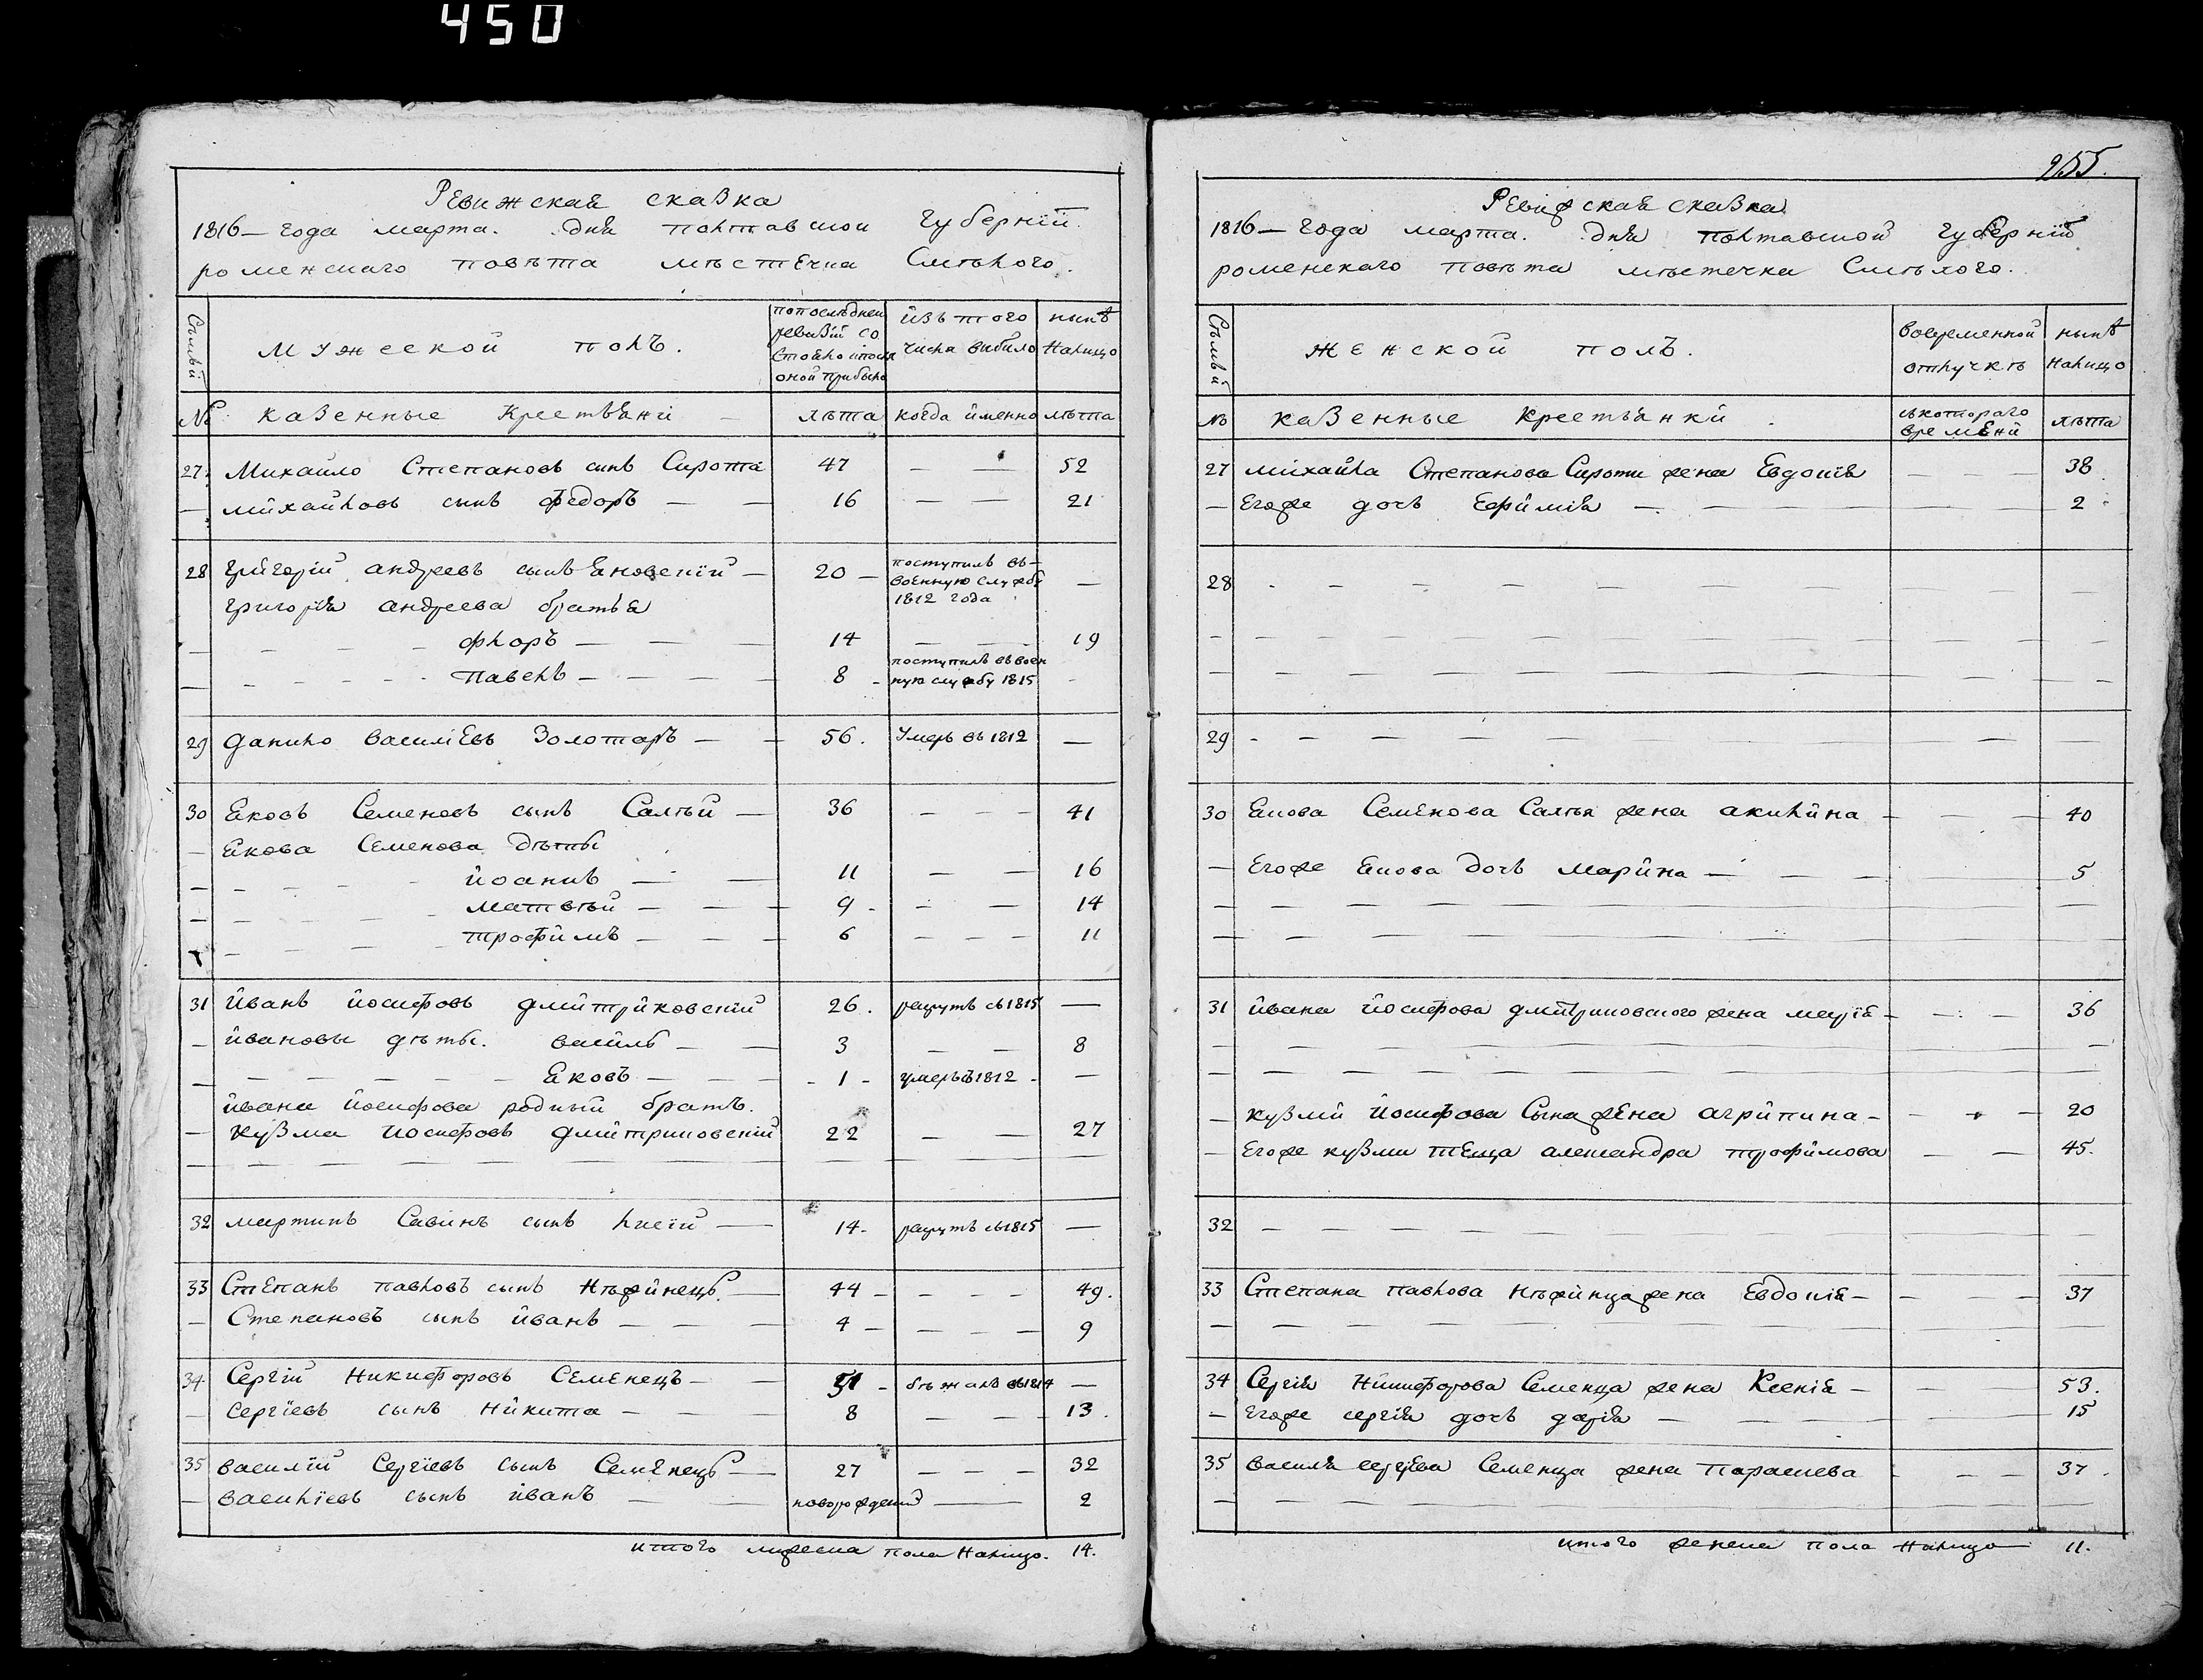 450
Ревижская сказка
1816 — года марта. дня полтавской Губерніи.
роменскаго повѣта мѣстечка Смѣлого.
Сѣмьи
Мужеской полъ.
попослѣдней ревизіи состояло ипосля оной прибыло
изъ того числа выбыло
нынѣ налицо
№ казенные Крестьяни — лѣта когда именно лѣта
27. Михайло Степановъ сынъ Сирота 47 — — 52
— михайловъ сынъ федоръ — — 16 — — 21
28 григорій андреевъ сынъ Яновскій — 20 — поступилъ въ военную службу 1812 года —
григорія андреева братья
— — — — — флоръ — — — 14 — — — 19
— — — — — павелъ — — — — 8 — поступилъ въ военную службу 1815 -
29 данило василіевъ Золотаръ — — 56. Умеръ въ 1812 —
30 Яковъ Семеновъ сынъ Салѣй — 36 — — — 41
— Якова Семенова дѣты
— — — — — иоаннъ — — 11 — — 16
— — — — — матвѣй — — — 9 — — — 14
— — — — трофимъ — — — 6 — — — 11
31 иванъ иосифовъ дмитриковскій 26. рекрутъ съ 1815 —
— ивановы дѣты. василь — — 3 — — 8
— — — — — — Яковъ — — — 1 — умеръ въ 1812 — —
ивана иосифова родный братъ.
— кузма иосифовъ дмитриковскій 22 — — 27
32 мартинъ Савинъ сынъ лисій — 14 — рекрутъ съ 1815 —
33 Степанъ павловъ сынъ Нѣжинецъ — 44 — — — — 49.
— Степановъ сынъ иванъ — — — 4 — — — — 9
34 Сергій Никифоровъ Семенецъ — — 51 — бѣжалъ въ 1814 —
— Сергіевъ сынъ Никита — — — 8 — — 13.
35 василій Сергіевъ сынъ Семенецъ — 27 — — — 32
— василіевъ сынъ иванъ — новорожденій — 2
итого мужеска пола налицо. 14.
255.
Ревижская сказка
1816 — года марта. дня полтавской губерніи
роменскаго повѣта мѣстечка Смѣлого.
Сѣмьи
Женской полъ.
вовременной отлучкѣ
нынѣ налицо
№ казенные Крестьянки. съкотораго времени лѣта
27 михайла Степанова Сироти жена Евдокія — — 38
— Егоже дочь Ефимія — — — — — — 2
28 - - - — — — — — — —
29 - — — — — — —
30 Якова Семенова Салѣя жена акилина — — — 40
— Егоже Якова дочь марина — — — 5
31 ивана иосифова дмитриковского жена марія — — — 36
— кузми иосифова Сына жена агрипина — — — — 20
— Егоже кузми теща александра трофимова — — 45.
32 — — — — — — — — — —
33 Степана павлова Нѣжинца жена Евдокія — — — — 37
34 Сергія Никифорова Семенца жена Ксенія — — — 53.
— Егоже сергія дочь дарія — — — — 15
35 василя сергіева Семенца жена Параскева - — — 37.
итого женска пола налицо 11.